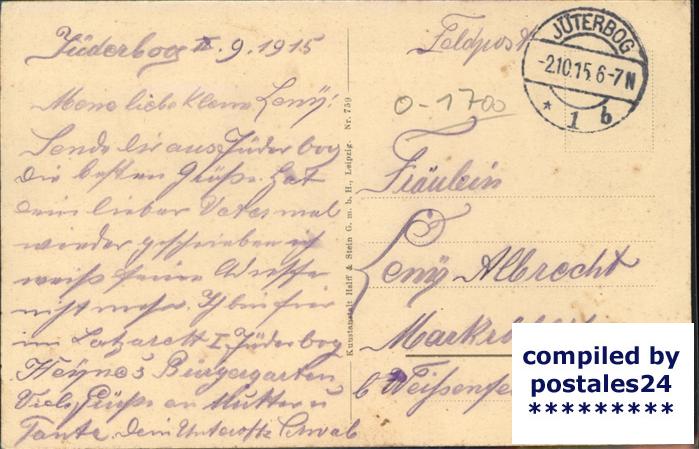 Jüderbog II. 9. 1915
Meine liebe kleine Leny!
Sende dir aus Jüderbog
die besten Grüße. Hat
dein lieber Vater mal
wieder geschrieben ich
weiß seine Adresse
nicht mehr. Ich bin hier
im Lazarett I Jüderbog
Heynes Bürgergarten
Viele Grüße an Mutter u
Tante. Dein Unteroffz. Schwab
Kunstanstalt Halff & Stein G. m. b. H., Leipzig. Nr. 759
Feldpost
JÜTERBOG
-2.10.15.6-7N
* 1 b
0-1700
Fräulein
Leny Albrecht
b Weißenfe
compiled by
postales24
*********